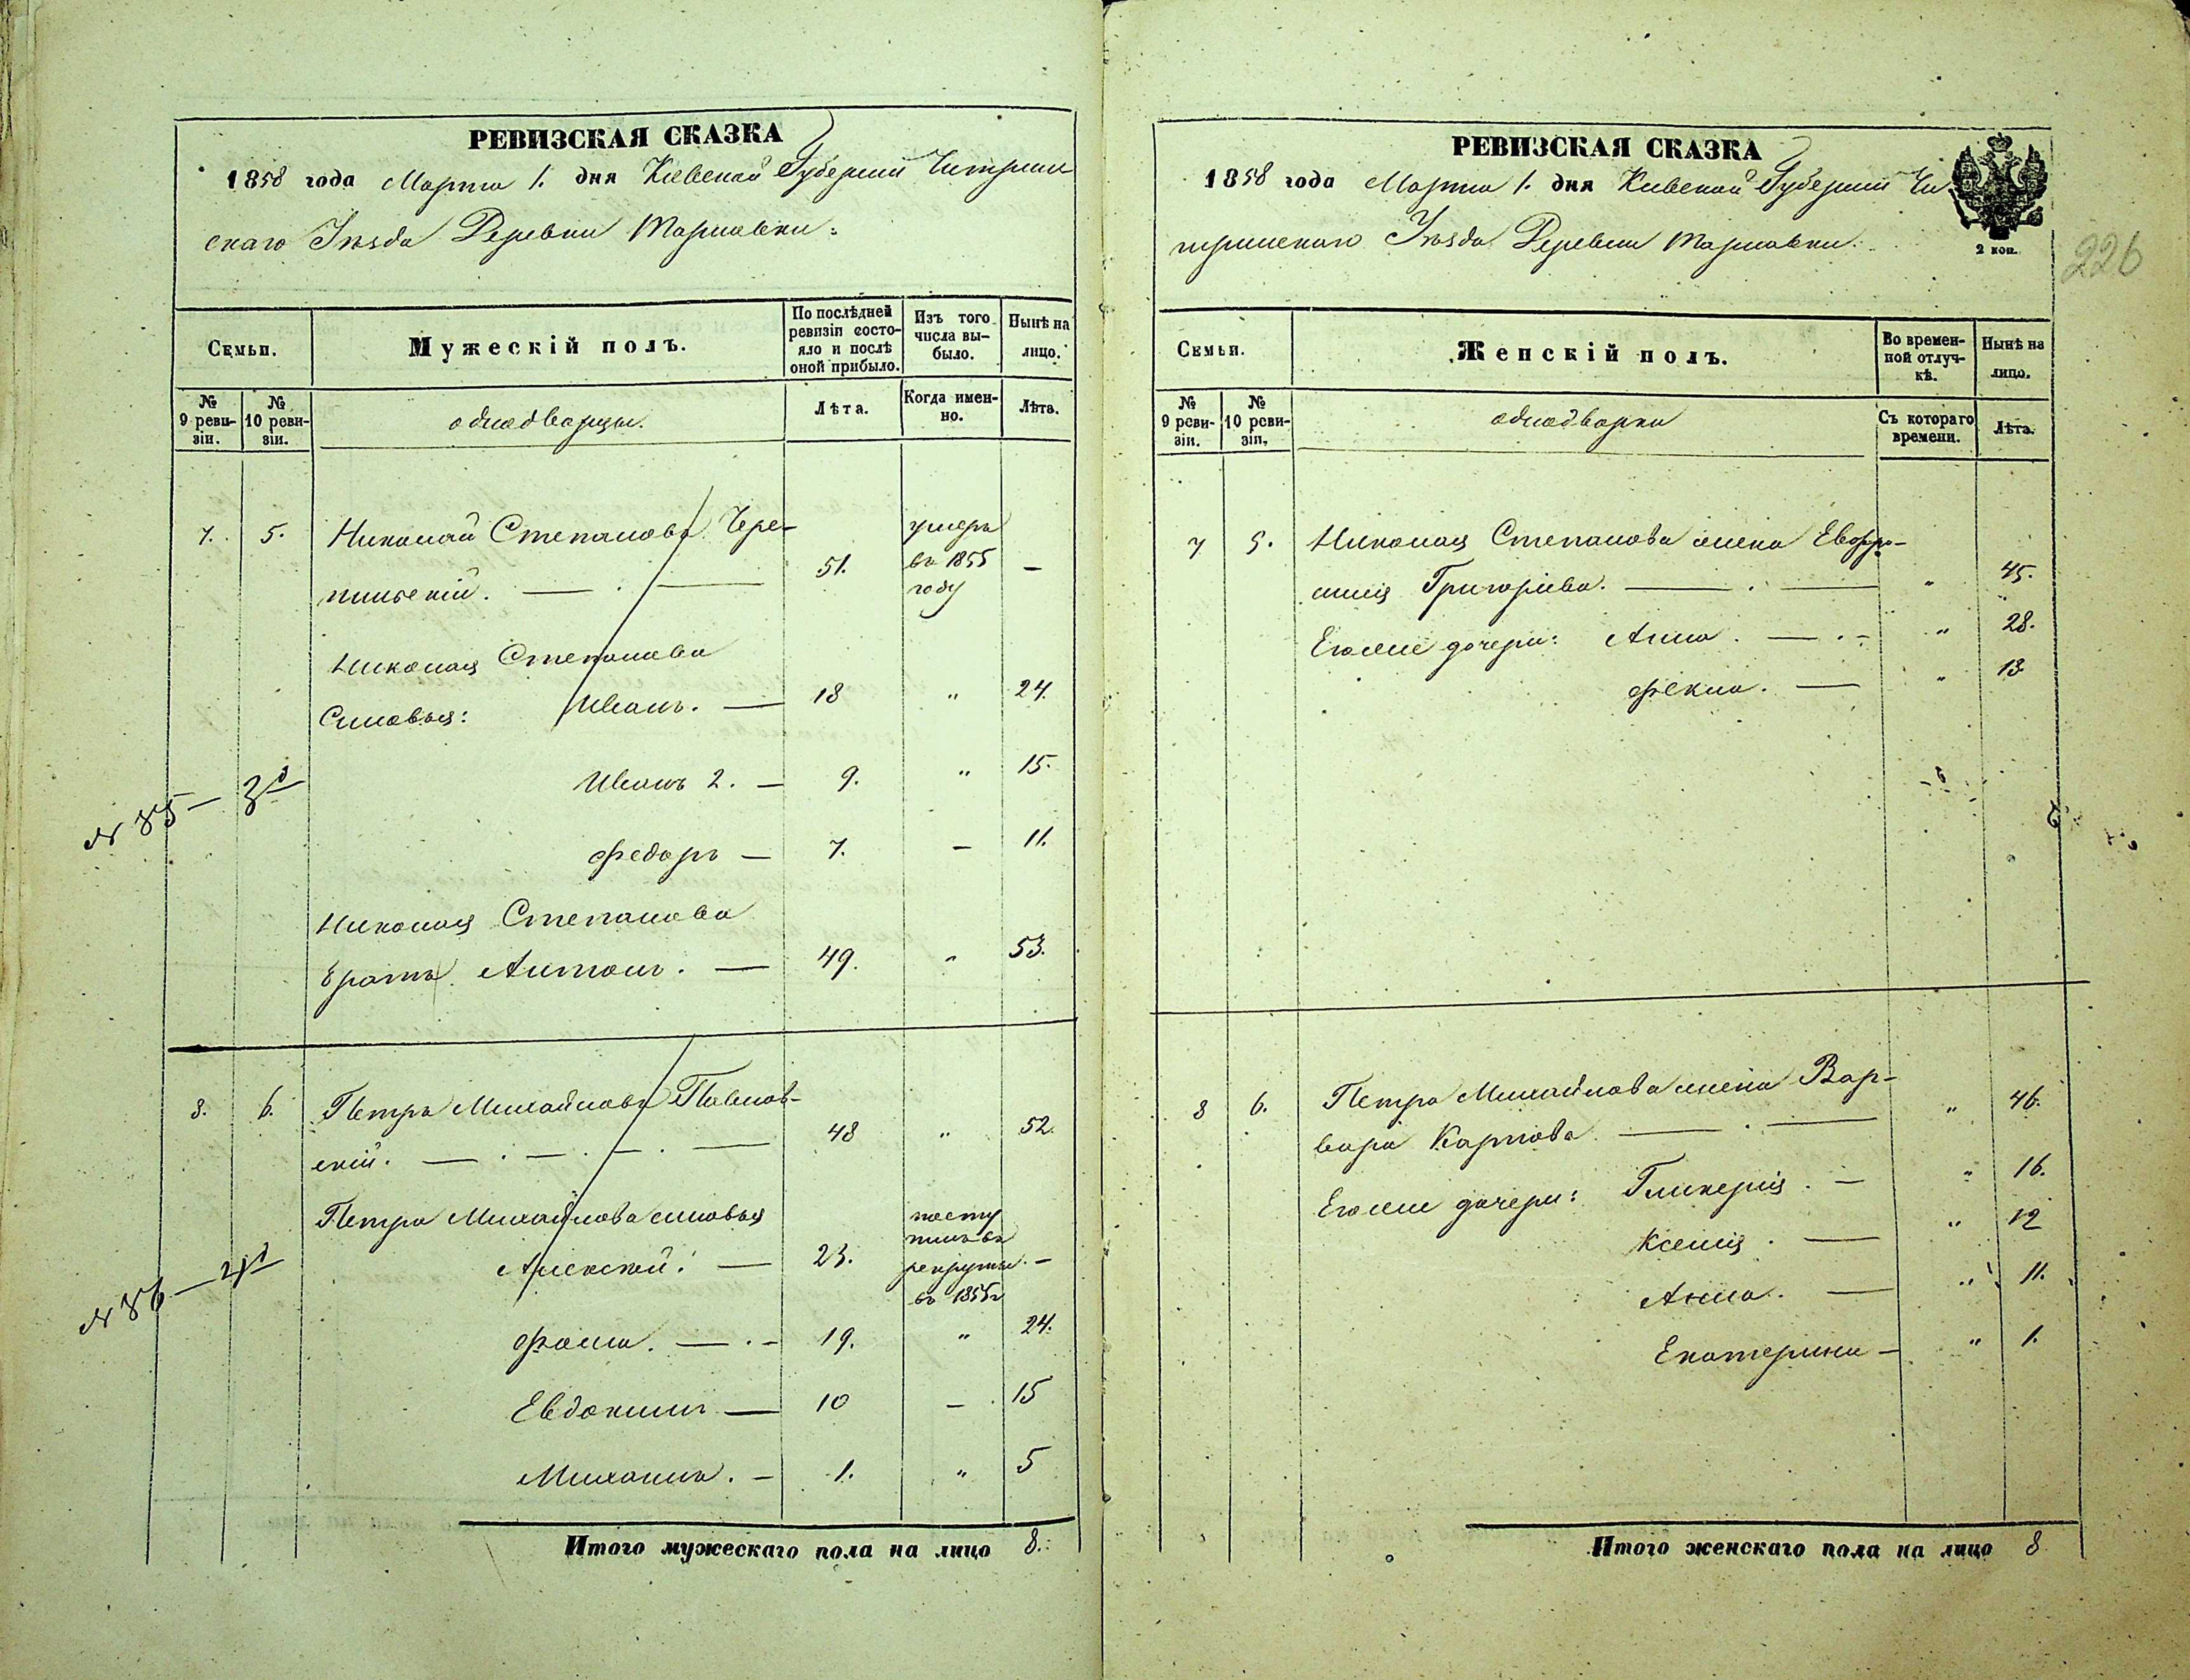 РЕВИЗСКАЯ СКАЗКА
1858 года Марта 1. дня Кіевской Губерніи Чигрин
скаго Уѣзда Деревни
Семьи.
Мужескій полъ.
По послѣдней ревизіи состояло и послѣ оной прибыло.
Изъ того числа вы-было.
Нынѣ на лицо.
№ 9 реви-зіи.
№ 10 реви-зіи.
однодворцы.
Лѣта.
Когда имен-но.
Лѣта.
7. 5. Николай Степановъ Чере-
пинскій. — . — 51. умеръ въ 1855 году —
Николая Степанова
Сыновья: Иванъ. — 18 " 24.
Иванъ 2. — 9. " 15.
№ 85 — 3 д
Федоръ — 7. — 11.
Николая Степанова
братъ Антонъ. — 49. " 53.
8. 6. Петръ Михайловъ Павлов-
скій. — . — . — . — 48 " 52.
Петра Михайлова сыновья
Алексѣй. — 23. посту пилъ въ рекруты въ 1855 г —
№ 86 — 4 д
Фома. — . - 19. " 24.
Евдокимъ — 10 — 15
Михаилъ. — 1. " 5
Итого мужескаго пола на лицо 8.
РЕВИЗСКАЯ СКАЗКА
1858 года Марта 1. дня Кіевской Губерніи Чи
гринскаго Уѣзда Деревни
2 коп.
226
Семьи.
Женскій полъ.
Во времен-ной отлуч-кѣ.
Нынѣ на лицо.
№ 9 реви-зіи.
№ 10 реви-зіи.
однодворки
Съ котораго времени.
Лѣта.
7 5. Николая Степанова жена Евфро-
синія Григорьева. — . — " 45.
Егожъ дочери: Анна. — . - " 28.
Фекла. — " 13
8 6. Петра Михайлова жена Вар-
вара Карпова. — . — " 46.
Егоже дочери: Гликерія. — " 16.
Ксенія. — " 12
Анна. — " 11.
Екатерина — " 1.
Итого женскаго пола на лицо 8